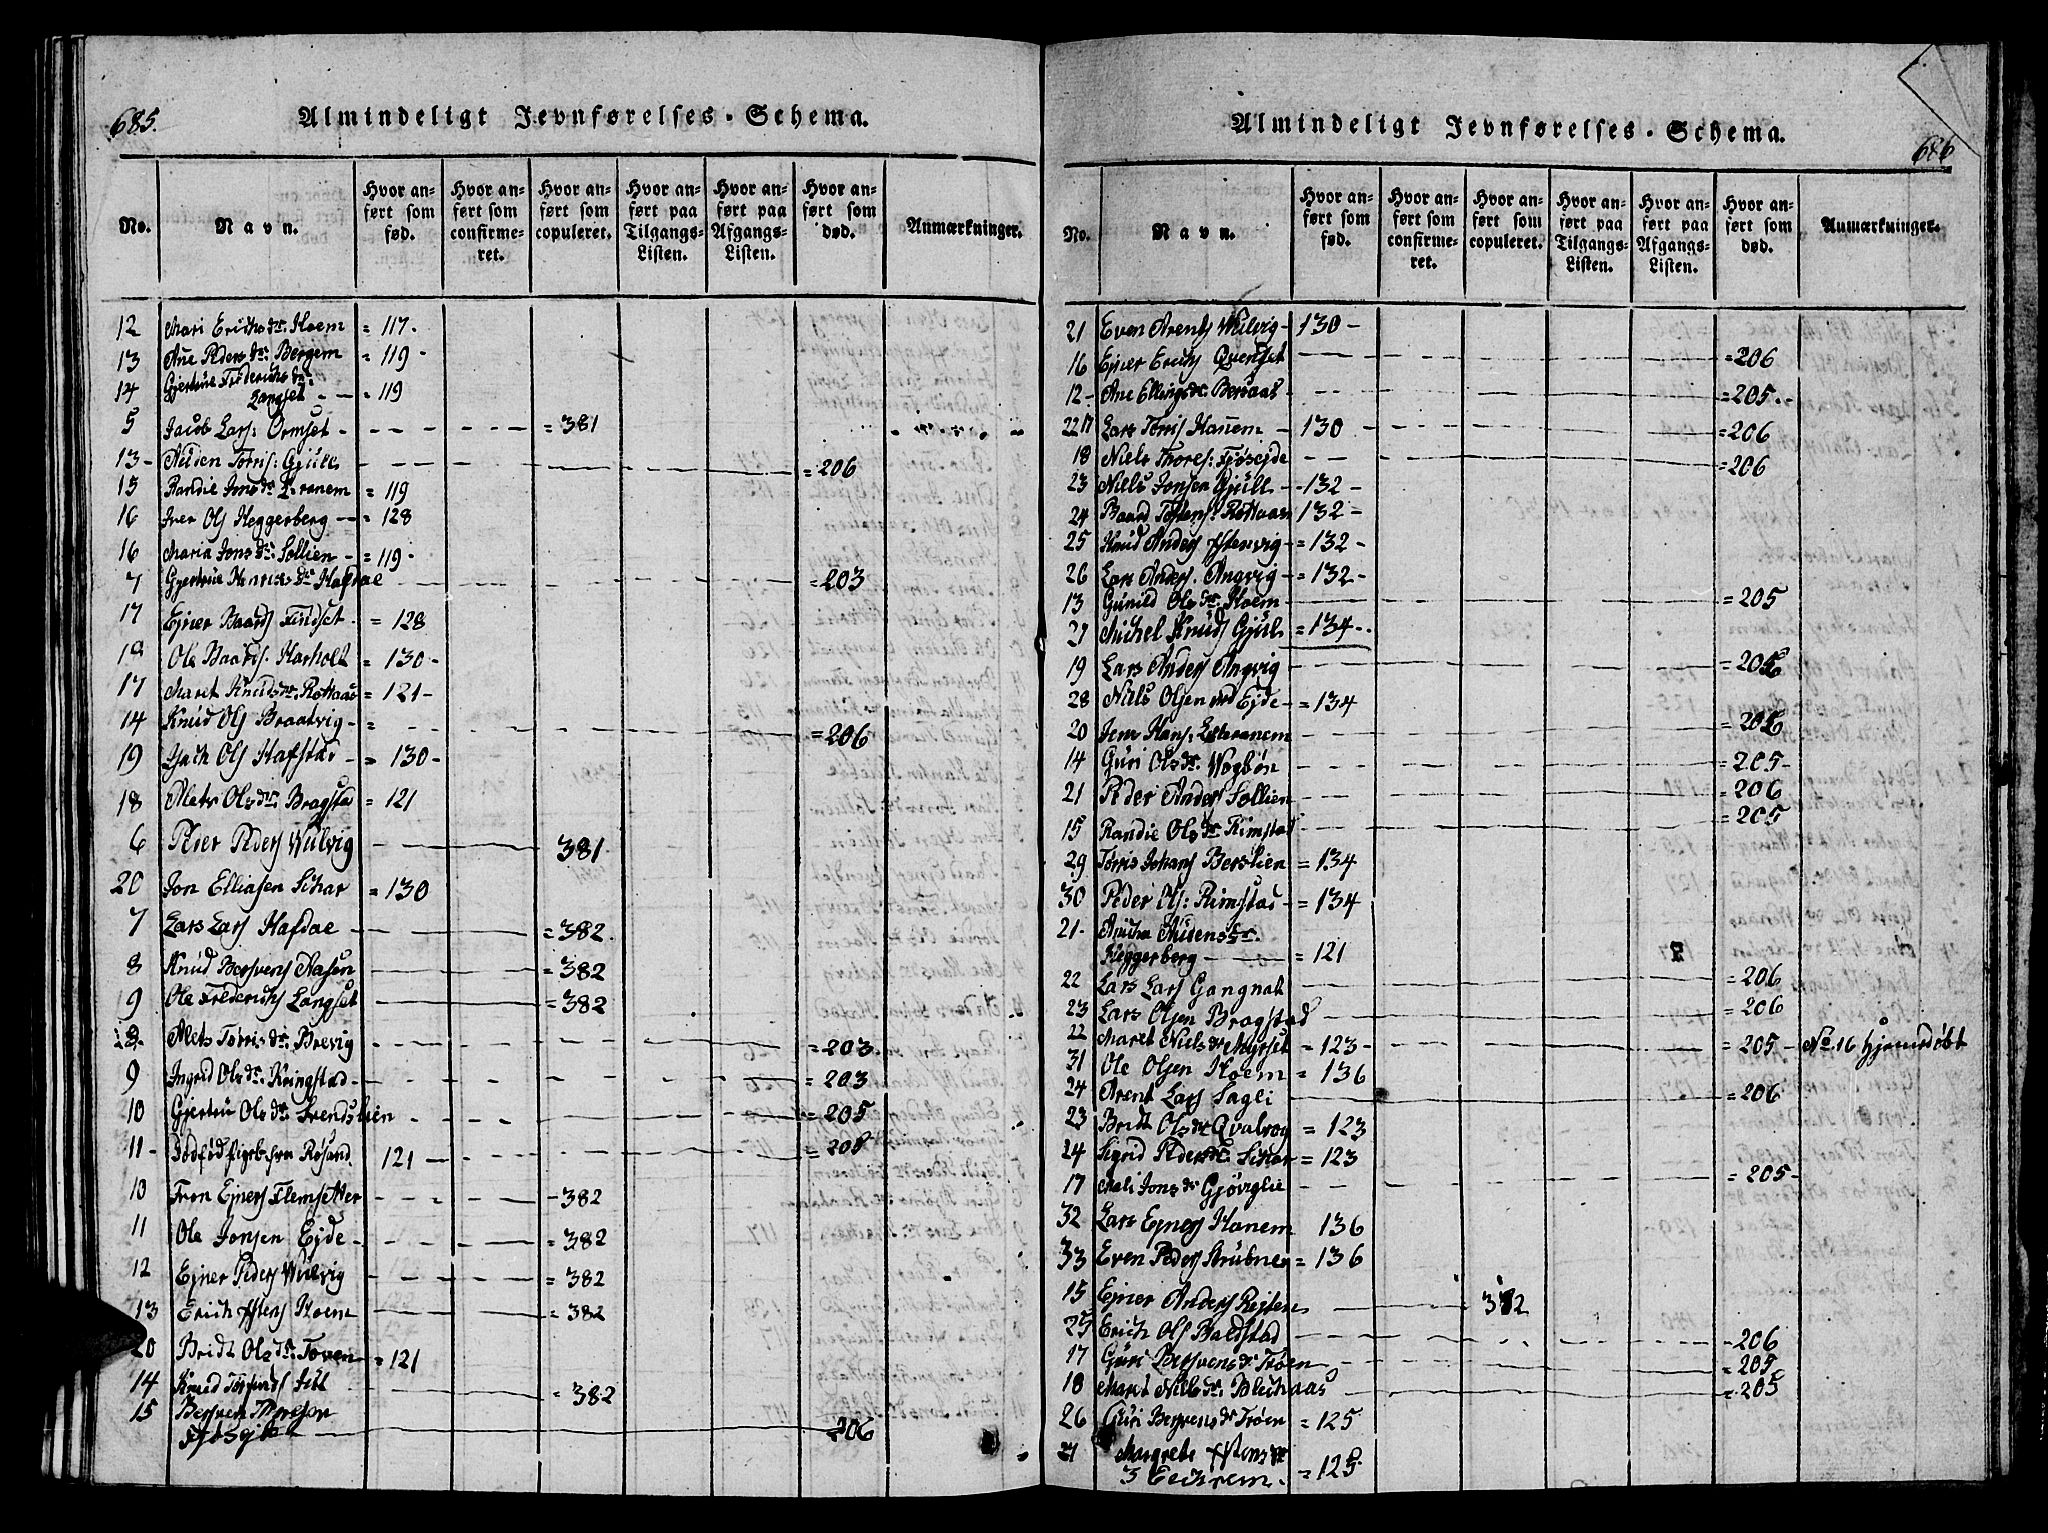 685.
Almindeligt Jevnførelses-Schema.
No. Navn. Hvor anført som fød. Hvor anført som confirmeret. Hvor anført som copuleret. Hvor anført paa Tilgangs-Listen. Hvor anført paa Afgangs-Listen. Hvor anført som død. Anmærkninger.
12 Mari Erichsdr: Hoem = 117.
13 Ane Pedersdr: Bergem = 119
14 Gjertrue Frederichsdr:
Langset - 119
5 Jacob Lars: Ormset = 381
13 Auden Torris: Gjull = 206
15 Randie Jonsdr = 119
16 Iver Ols Heggerberg = 128
16 Maria Jonsdr: Sollien = 119
7 Gjertrue Henrichsdr Hafdae = 203
17 Ejner Baards Findset = 128
Ole Baards. Harholt = 130
17 Maret Knudsdr: Rottaas = 121
14 Knud Ols Braatvig = 206
19 Ols Hafstad = 130
18 Mets Olsdr: Bragstad = 121
6 Peder Peders Wulvig 381
20 Jon Elliasen Schar = 130
7 Lars Lars Hafdae = 382
8 Knud Bersvens Aasen = 382
9 Ole Frederichs Langset = 382
8 Mets Torrisdr: Brevig = 203
9 Ingrid Olsdr: Kringstad = 203
10 Gjertru Olsdr: Svendslien = 205
11 Dødfød Pigeb: fra Røsand 121 = 205
10 Tron Ejners Flemsetter 382
11 Ole Jonsen Ejde = 382
12 Ejner Peders Wulvig = 382
13 Erich Hoem = 382
20 Bridt Olsdr: Toven = 121
14 Knud = 382
15 Bersven Thoresen
206
Almindeligt Jevnførelses-Schema.
686
No. Navn. Hvor anført som fød. Hvor anført som confirmeret. Hvor anført som copuleret. Hvor anført paa Tilgangs-Listen. Hvor anført paa Afgangs-Listen. Hvor anført som død. Anmærkninger.
21 Even Arents Wulvig 130
16 Ejner Erichs Qvenset = 206
12 Ane Ellingsdr: Beraas = 205
22 17 Lars Torris Hanem 130 = 206
18 Niels Thores: = 206
23 Niels Jonsen Gjull 132
24 Baard Rottaas 132
25 Knud Anders = 132
26 Lars Anders. Angvig = 132
13 Gunild Olsdr: Hoem = 205
Michel Knuds Gjul = 134
19 Lars Anders Angvig = 206
28 Niels Olsen Ejde = 134
20 Hans: = 206
14 Guri Olsdr: Wogbøn = 205
21 Peder Anders Sollien = 206
15 Randie Olsdr Rimstad = 205
29 Torris Johans Berslien = 134
30 Peder Ols: Rimstad = 134
21 Audensdr:
Heggerberg = 121
22 Lars Lars Gangnat = 206
23 Lars Olsen Bragstad = 206
22 Maret Nielsdr = 123 = 205 No. 16 hjemedøbt
31 Ole Olsen Hoem = 136
24 Arent Lars Sagli = 206
23 Bridt Olsdr Qvalvog = 123
24 Sigrid Pedersdr: Schar = 123
17 Mali Jonsdr Gjøviglie = 205
32 Lars Ejners Hanem 136
33 Even Peders Strubnes = 136
15 Ejner Anders Rejten 382
25 Erich Ols Boldstad 206
17 Guri Bersvensdr Trøen = 205
18 Marit Nielsdr: = 205
26 Guri Bersvensdr Trøen = 125
Margrete
= 125